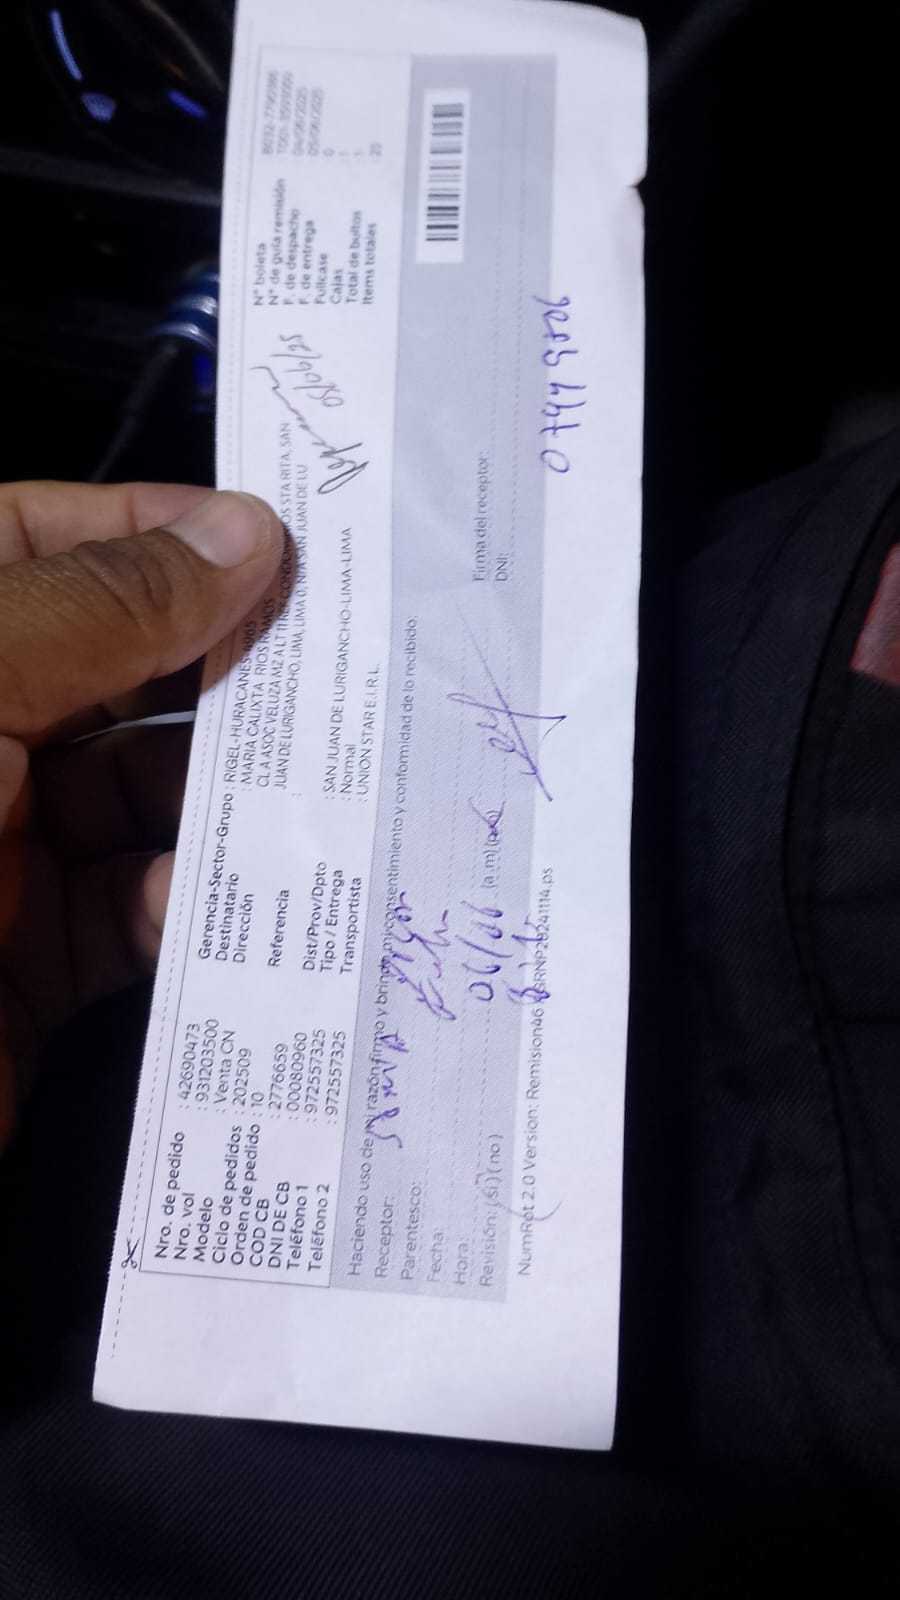 Nro. de pedido : 42690473
Nro. vol : 931203500
Modelo : Venta CN
Ciclo de pedidos : 202509
Orden de pedido : 10
COD CB : 2776659
DNI DE CB : 00080960
Teléfono 1 : 972557325
Teléfono 2 : 972557325
Gerencia-Sector-Grupo : RIGEL-HURACANES
Destinatario : MARIA CALIXTA RIOS RAMOS
Dirección CL A ASOC VELUZA MZ A LT 11 STA RITA, SAN
JUAN DE LURIGANCHO, LIMA, LIMA 0, N/A SAN JUAN DE LU
Referencia :
Dist/Prov/Dpto : SAN JUAN DE LURIGANCHO-LIMA-LIMA
Tipo / Entrega : Normal
Transportista : UNION STAR E.I.R.L.
05/06/25
N° boleta
N° de guía remisión
F. de despacho 04/06/2025
F. de entrega 05/06/2025
Fullcase 0
Cajas : 1
Total de bultos : 1
Items totales : 20
Haciendo uso de mi razón firmo y brindo mi consentimiento y conformidad de lo recibido.
Receptor:
Parentesco:
Fecha: 06/06
Hora: (a.m)
Revisión: (si) (no)
Firma del receptor:
DNI:
NumRot 2.0 Version: Remision46